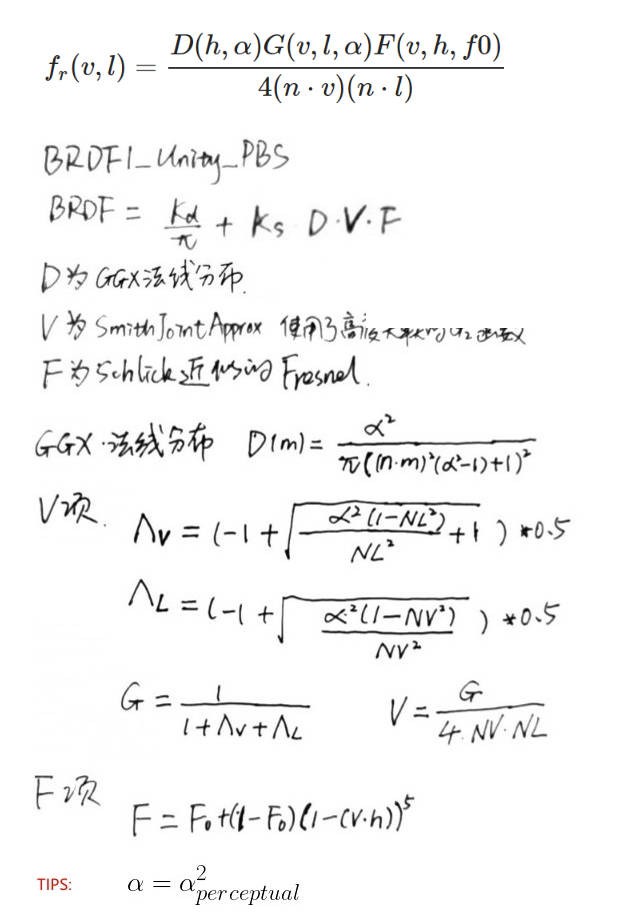 f_r(v, l) = \frac{D(h, α)G(v, l, α)F(v, h, f0)}{4(n · v)(n · l)}
BRDF1_Unity_PBS
BRDF = \frac{Kd}{π} + Ks D·V·F
D为GGX法线分布
V为SmithJointApprox 使用了高
F为Schlick近似的Fresnel.
GGX·法线分布 D(m) = \frac{α²}{π((n·m)²(α²-1)+1)²}
V项. Λ_V = (-1 + \sqrt{\frac{α²(1-NL²)}{NL²} + 1}) * 0.5
Λ_L = (-1 + \sqrt{\frac{α²(1-NV²)}{NV²}}) * 0.5
G = \frac{1}{1+Λ_V+Λ_L} V = \frac{G}{4·NV·NL}
F项 F = F_0+(1-F_0)(1-(V·h))^5
TIPS: α = α^2_{perceptual}